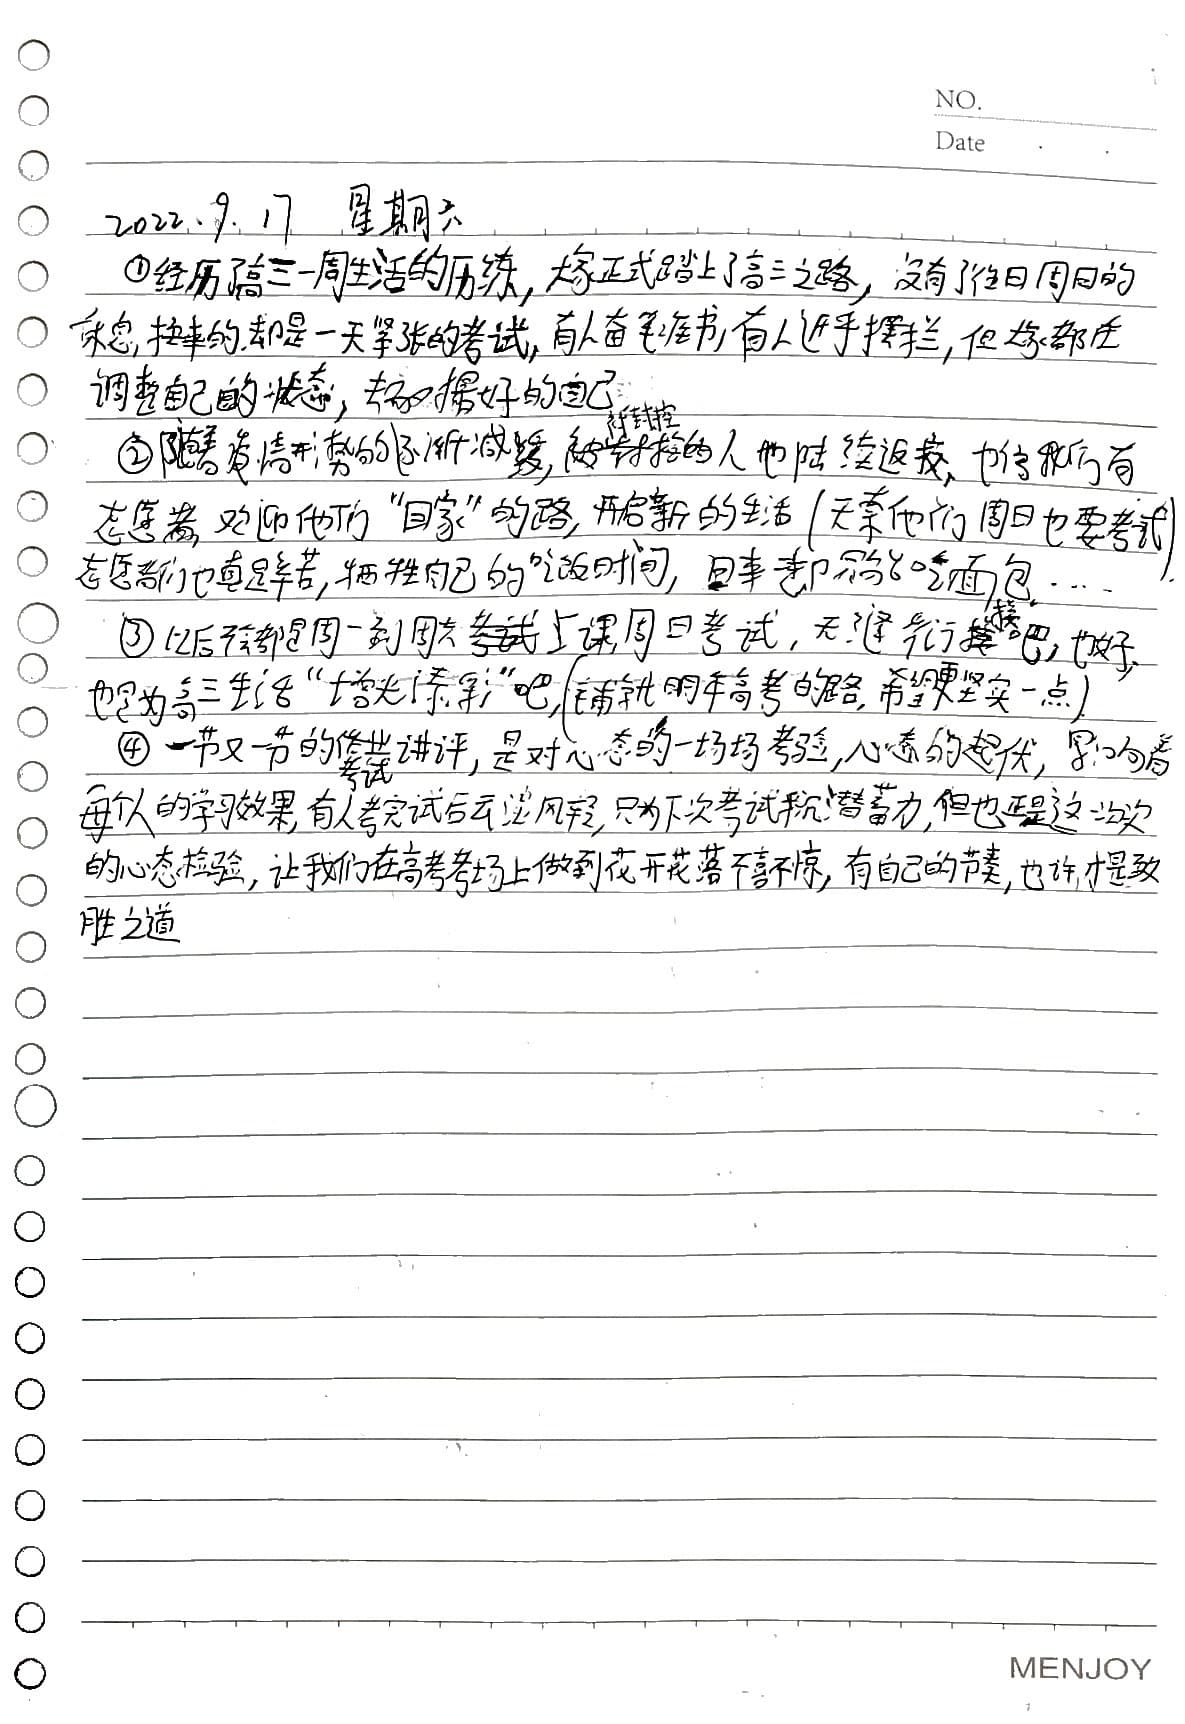 NO.
Date
2022.9.17 星期六
①经历了高三一周生活的历练,大家正式踏上了高三之路,没有了往日周日的
休息,换来的却是一天紧张的考试,有人奋笔疾书,有人近乎摆烂,但大家都在
调整自己的状态,去 最好的自己
②随着疫情形势的逐渐减缓,被封控的人他陆续返校,也得我们有
志愿者,欢迎他们“回家”的路,开启新的生活(无奈他们周日也要考试)
志愿者们也真是辛苦,牺牲自己的吃饭时间,回来却只能吃面包....
③以后都是周一到周六上课,周日考试,无缝衔接吧,也好,
也是为高三生活“增光添彩”吧,(铺就明年高考的路,希望更坚实一点)
④一节又一节的考试讲评,是对心态的一场场考验,心态的起伏,影响着
每个人的学习效果,有人考完试后云淡风轻,只为下次考试积潜蓄力,但也正是这一次次
的心态检验,让我们在高考考场上做到花开花落不喜不惊,有自己的节奏,也许才是致
胜之道
MENJOY